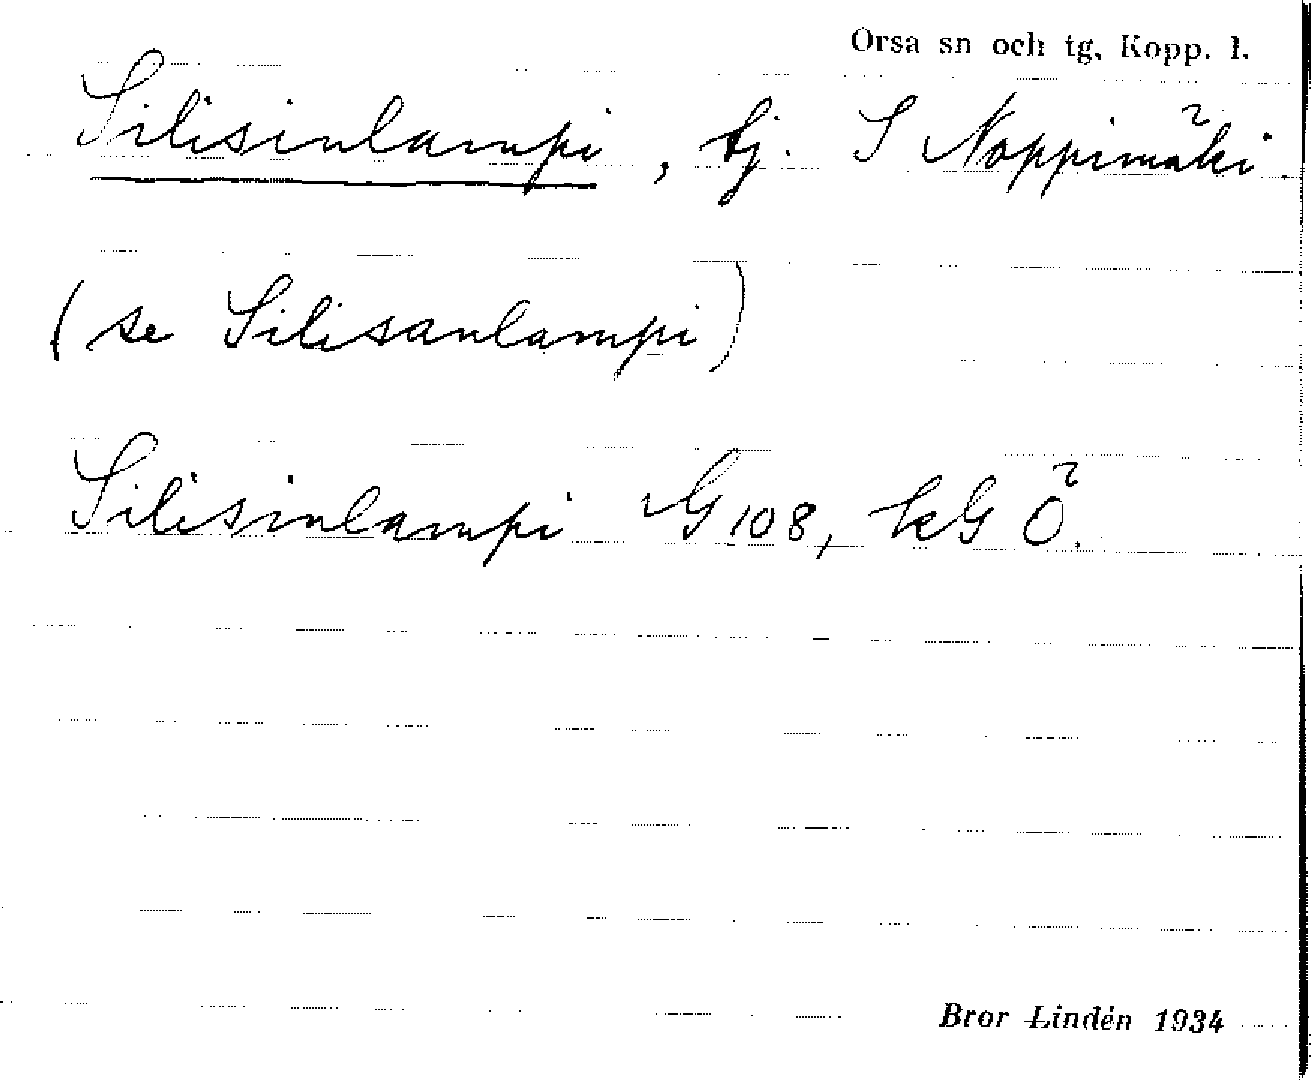 Orsa sn och tg. Kopp. l.
Silisinlampi, tj. S Noppimäki.
(se Silisanlampi)
Silisinlampi G 108, kG Ö.
Bror Lindén 1934